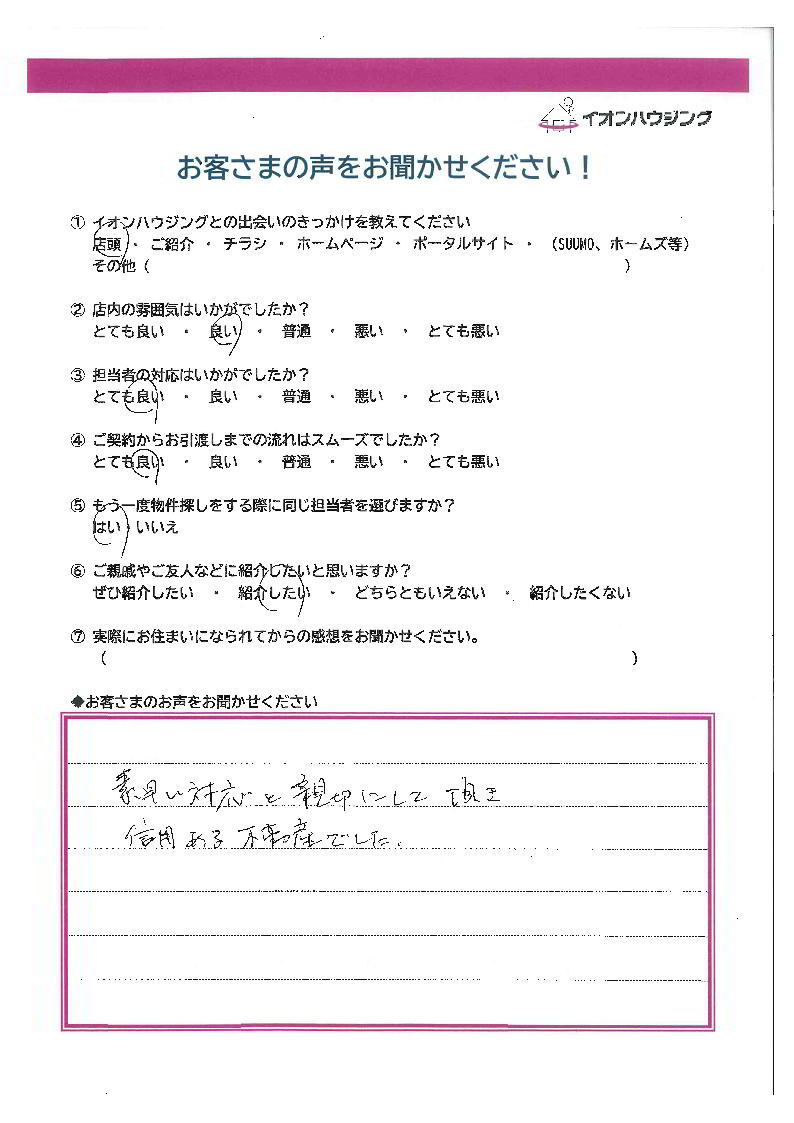 イオンハウジング
お客さまの声をお聞かせください！
① イオンハウジングとの出会いのきっかけを教えてください
店頭 ・ ご紹介 ・ チラシ ・ ホームページ ・ ポータルサイト ・ （SUUMO、ホームズ等）
その他（ ）
② 店内の雰囲気はいかがでしたか？
とても良い ・ 良い ・ 普通 ・ 悪い ・ とても悪い
③ 担当者の対応はいかがでしたか？
とても良い ・ 良い ・ 普通 ・ 悪い ・ とても悪い
④ ご契約からお引渡しまでの流れはスムーズでしたか？
とても良い ・ 良い ・ 普通 ・ 悪い ・ とても悪い
⑤ もう一度物件探しをする際に同じ担当者を選びますか？
はい・いいえ
⑥ ご親戚やご友人などに紹介したいと思いますか？
ぜひ紹介したい ・ 紹介したい ・ どちらともいえない ・ 紹介したくない
⑦ 実際にお住まいになられてからの感想をお聞かせください。
（ ）
◆お客さまのお声をお聞かせください
素早い対応と親切にして頂き
信用ある不動産でした。